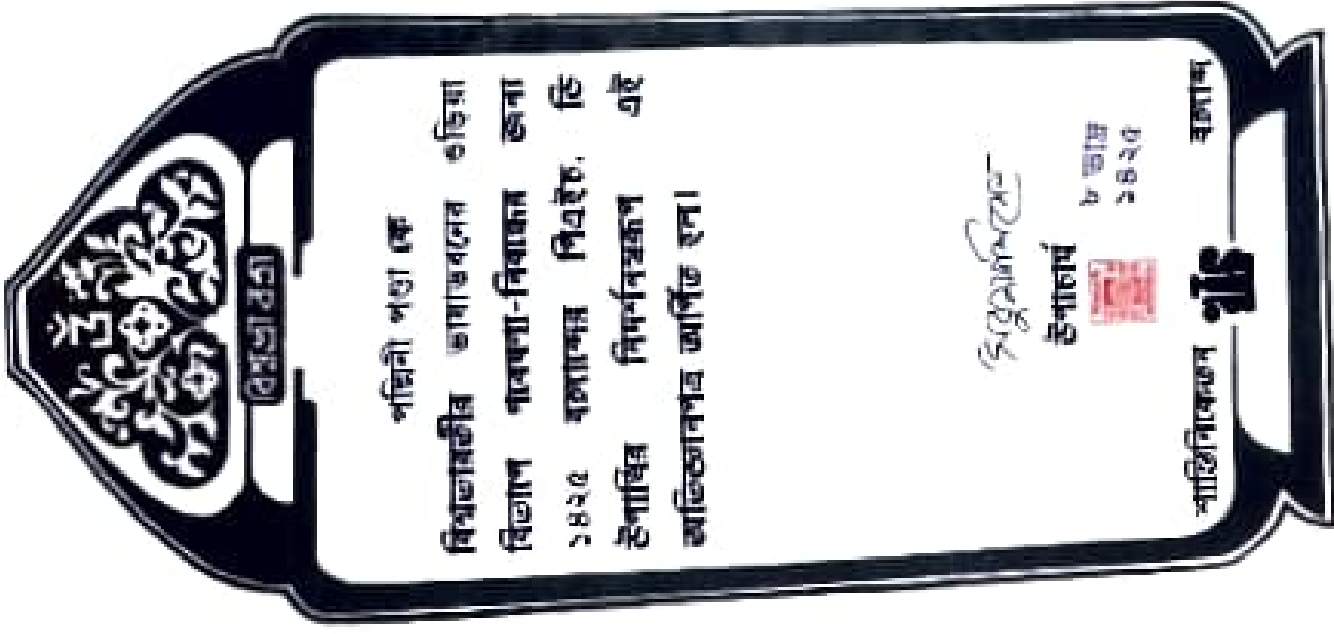 ওঁ
বিশ্বভারতী
পদ্মিনী পণ্ডা কে
বিশ্বভারতীর ভাষাভবনের ওড়িয়া
বিভাগে গবেষণা-নিবন্ধের জন্য
১৪২৫ বঙ্গাব্দের পিএইচ. ডি
উপাধির নিদর্শনস্বরূপ এই
অভিজ্ঞানপত্র অর্পিত হল।
উপাচার্য
৮ ভাদ্র
১৪২৫
শান্তিনিকেতন
বঙ্গাব্দ